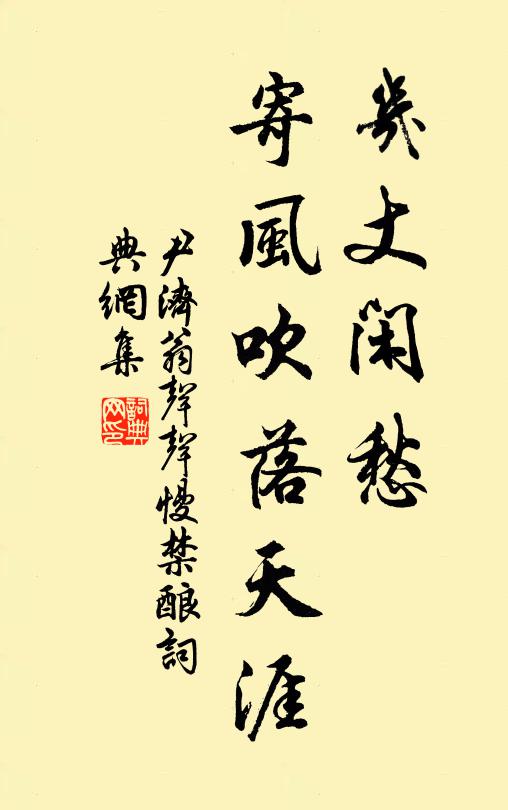 幾丈閑愁
寄風吹落天涯
尹濟翁聲聲慢禁酿詞
典網集
詞典網印